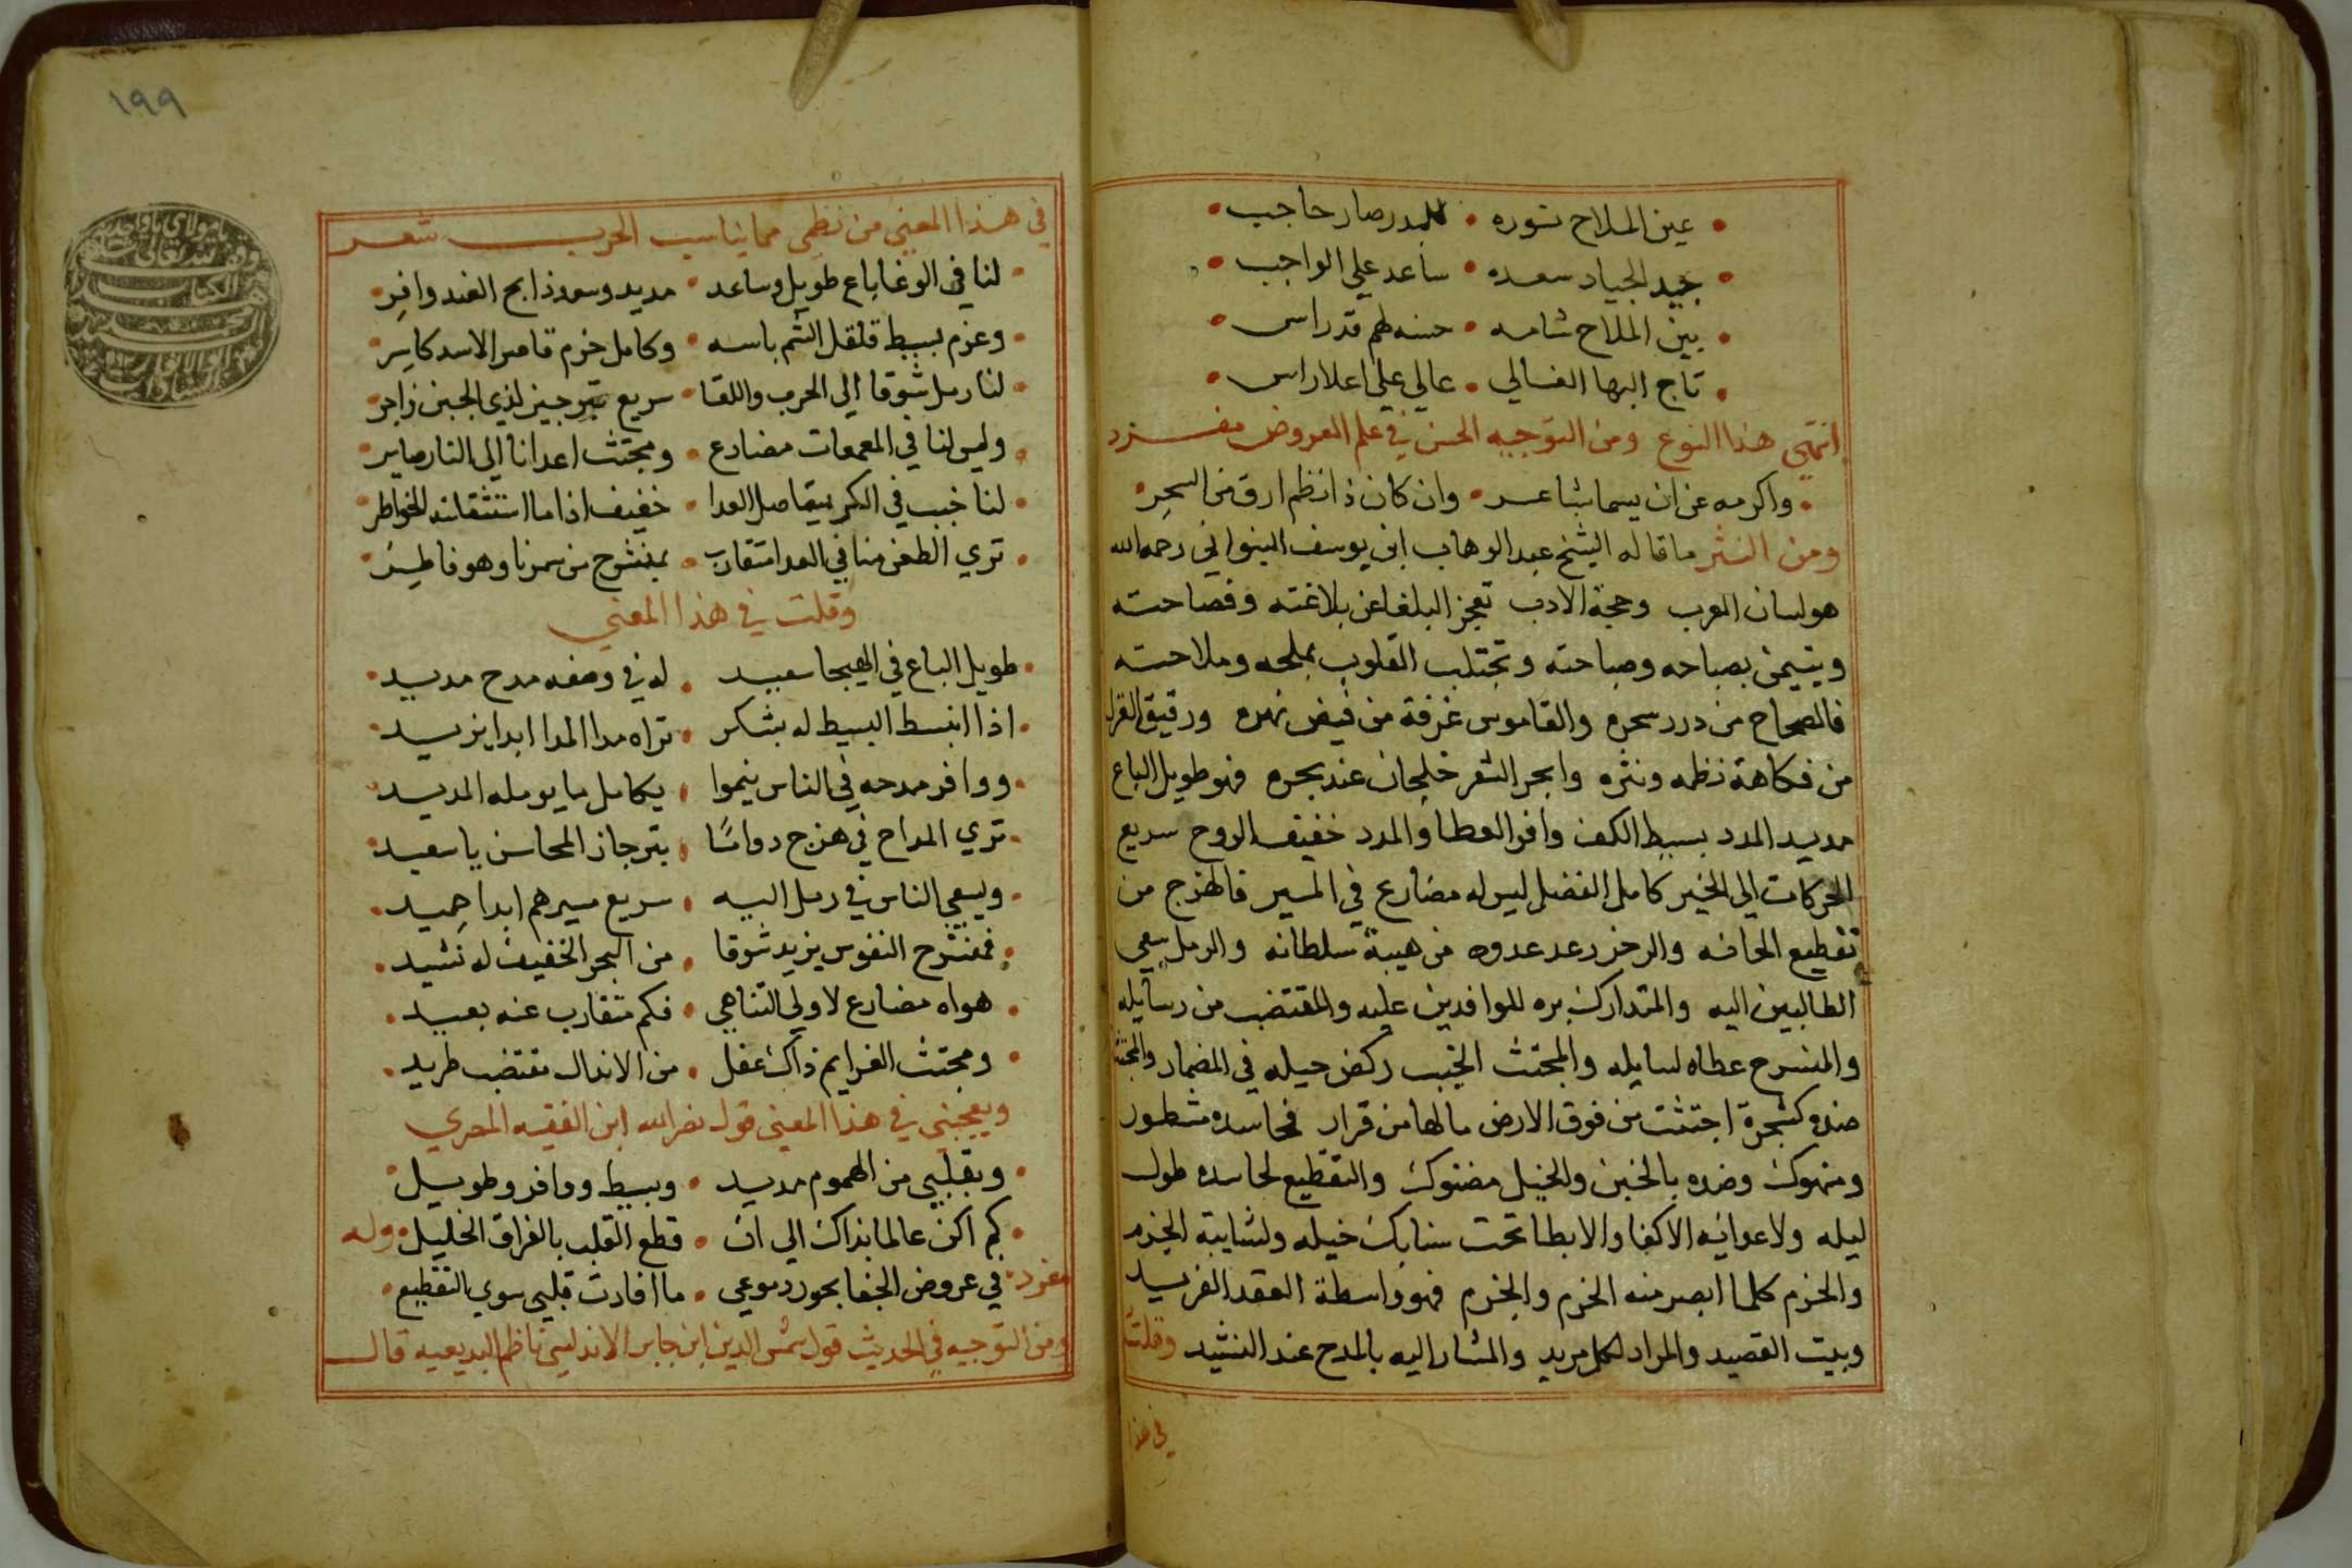 عين الملاح نوره • للبدر صار حاجب
جيد الجياد سعده • ساعد علي الواجب
بين الملاح شامه • حسنه لهم قد راس
تاج البها الغالي • عالي علي اعلا راس
انتهي هذا النوع ومن التوجيه الحسن في علم العروض مفرد
واكرمه عن ان يسما بشاعر • وان كان ذا نظم ارق من السحر
ومن النثر ما قاله الشيخ عبد الوهاب ابن يوسف رحمه الله
هو لسان العرب وحجة الادب تعجز البلغا عن بلاغته وفصاحته
ويتيمن بصباحه وصباحته وتجتلب القلوب بملحه وملاحته
فالصحاح من درر سحره والقاموس غرفة من فيض نهره ورقيق الغزل
من فكاهة نظمه ونثره وابحر الشعر خلجان عند بحره فهو طويل الباع
مديد المدد بسيط الكف وافر العطا والمدد خفيف الروح سريع
الحركات الي الخير كامل الفضل ليس له مضارع في المسير فالهزج من
تقطيع الحانه والرجز رعد عدوه من هيبة سلطانه والرمل سعي
الطالبين اليه والمتدارك بره للوافدين عليه والمقتضب من رسايله
والمنسرح عطاه لسايله والمجتث الخبب ركض خيله في المضمار والمجتث
ضده كشجرة اجتثت من فوق الارض مالها من قرار فحاسده مشطور
ومنهوك وضده بالخبن والخبل مضنوك والتقطيع لحاسده طول
ليله ولاعدائه الاكفا والابطا تحت سنابك خيله ولشايبة الخزم
والخزم كلما ابصر منه الخزم والجزم فهو واسطة العقد الفريد
وبيت القصيد والمراد لكل مريد والمشار اليه بالمدح عند النشيد وقلت
في هذا
١٩٩
في هذا المعني من نظمي مما يناسب الحرب شعر
لنا في الوغا باع طويل وساعد • مديد وسعد ذابح الضد وافر
وعزم بسيط قلقل الشم باسه • وكامل حزم قامر الاسد كاسر
لنا رمل شوقا الي الحرب واللقا • سريع بترجيز لذي الجبن زاجر
وليس لنا في المعمعات مضارع • ومجتث اعدانا الي النار صاير
لنا خبب في الكر يتقاصل العدا • خفيف اذا ما استثقلته الخواطر
تري الطعن منا في العدا متقارب • بمنشرح من سمرنا وهو فاطر
وقلت في هذا المعني
طويل الباع في الهيجا سعيد • له في وصفه مدح مديد
اذا انبسط البسيط له بشكر • تراه مدا المدا ابدا يزيد
ووافر مدحه في الناس ينموا • بكامل ما يومله المديد
تري المداح في هزج دواما • بترجاز المحاسن يا سعيد
ويسعي الناس في رمل اليه • سريع مسيرهم ابدا حميد
فمنشرح النفوس يزيد شوقا • من البحر الخفيف له نشيد
هواه مضارع لاولي التناهي • فكم متقارب عنه بعيد
ومجتث الغرايم ذاك عقل • من الانذال مقتضب طريد
ويعجبني في هذا المعني قول نصر الله ابن الفقيه المصري
وبقلبي من الهموم مديد • وبسيط ووافر وطويل
لم اكن عالما بذاك الي ان • قطع القلب بالفراق الخليل • وله
مفرد • في عروض الجفا بحور دموعي • ما افادت قلبي سوي التقطيع
ومن التوجيه في الحديث قول شمس الدين ابن جابر الاندلسي ناظم البديعيه قال